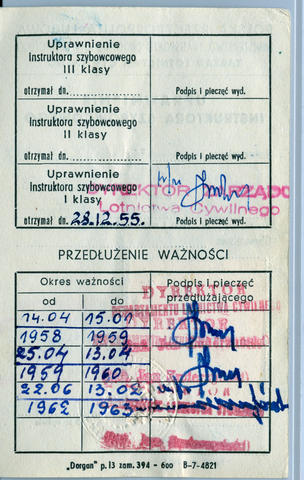 Uprawnienie
Instruktora szybowcowego
III klasy
otrzymał dn. Podpis i pieczęć wyd.
Uprawnienie
Instruktora szybowcowego
II klasy
otrzymał dn. Podpis i pieczęć wyd.
Uprawnienie
Instruktora szybowcowego
I klasy
DYREKTOR ZARZĄDU
Lotnictwa Cywilnego
otrzymał dn. 28.12.55. Podpis i pieczęć wyd.
PRZEDŁUŻENIE WAŻNOŚCI
Okres ważności Podpis i pieczęć
od do przedłużającego
DYREKTOR
DEPARTAMENTU LOTNICTWA CYWILNEGO
14.04 15.01
1958 1959
25.04 13.04
1959 1960
22.06 13.02
1962 1963
„Dorgan" p. 13 zam. 394 - 600 B-7-4821